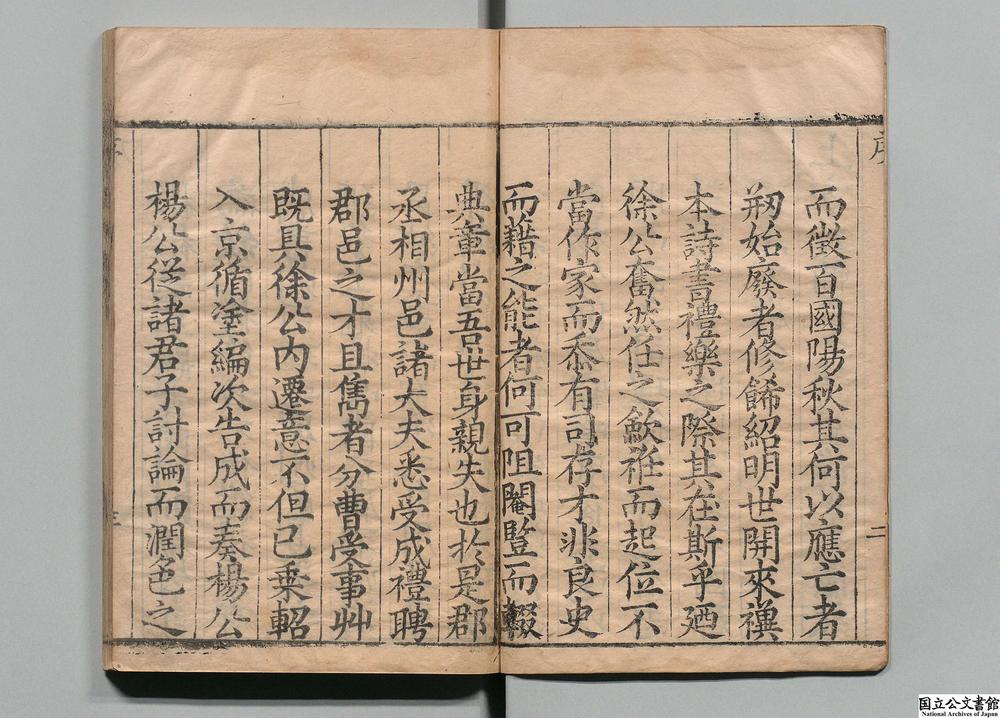 序
二
而徵百國陽秋其何以應亡者
刱始廢者修餙紹明世開來禩
本詩書禮樂之際其在斯乎廼
徐公奮然任之歛袵而起位不
當作家而忝有司存才非良史
而藉之能者何可阻閹豎而輟
典章當吾世身親失也於是郡
丞相州邑諸大夫悉受成禮聘
郡邑之才且雋者分曹受事艸
既具徐公內遷意不但已乗軺
入京循塗編次告成而奏楊公
楊公從諸君子討論而潤色之
国立公文書館
National Archives of Japan